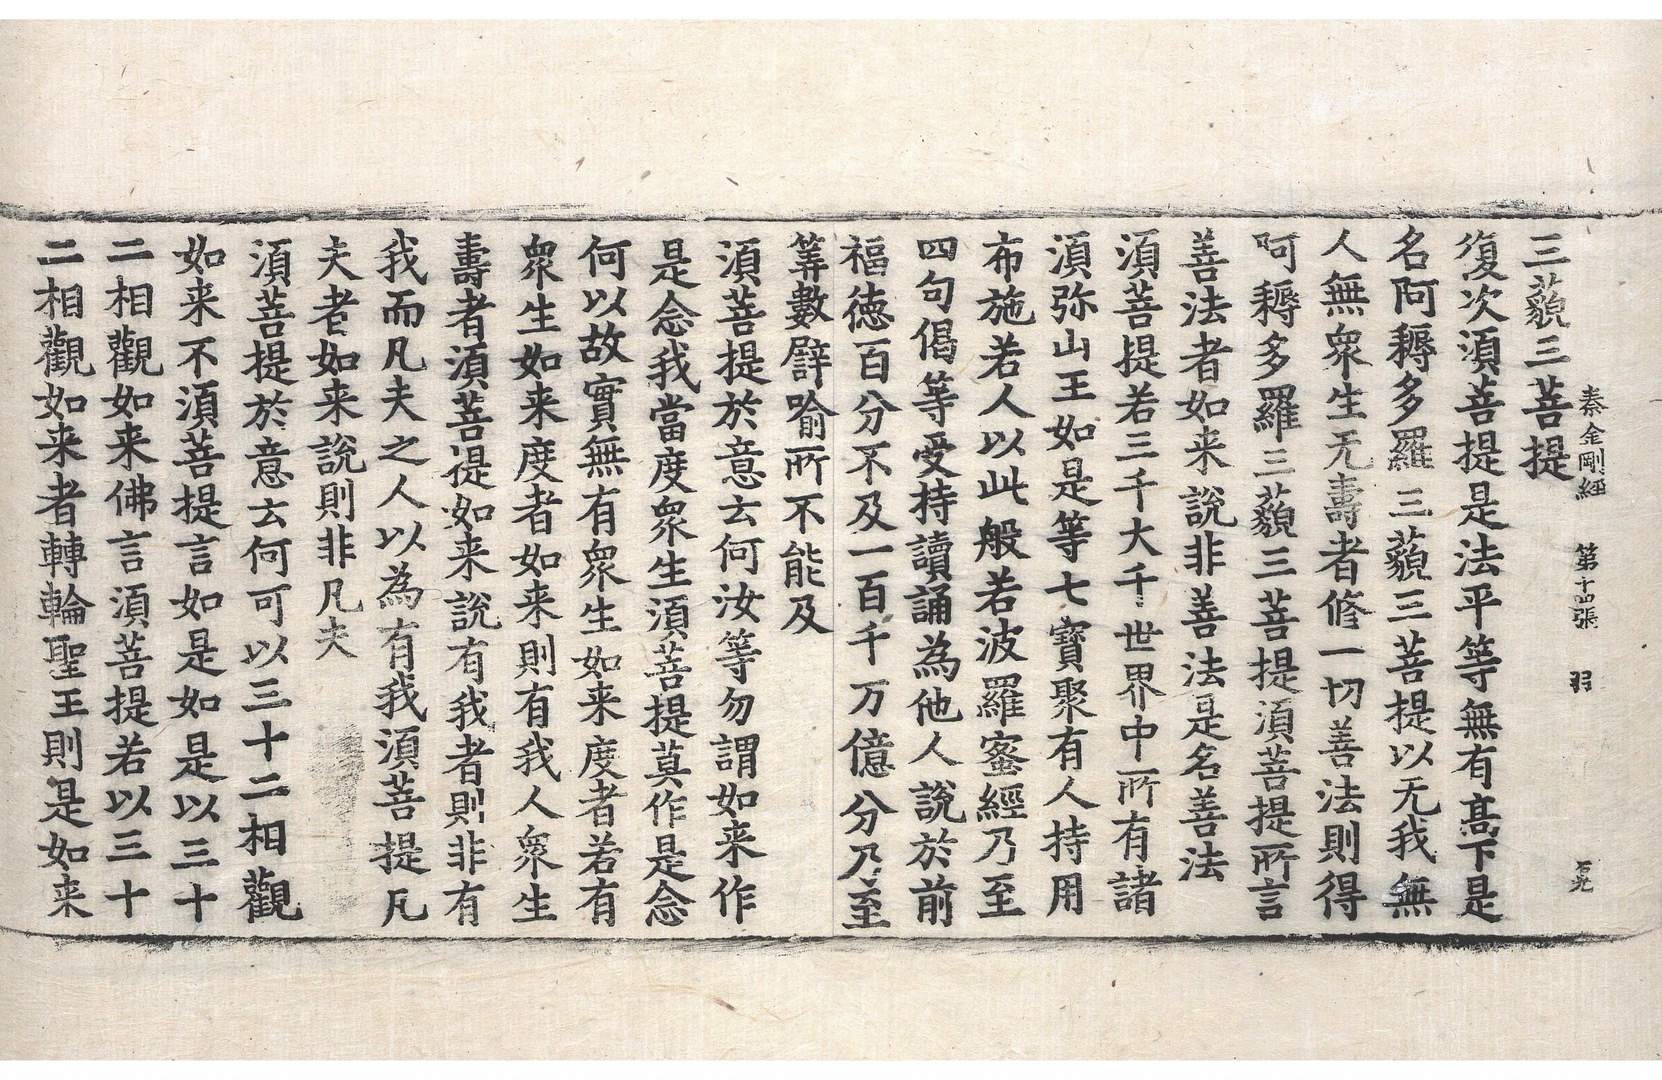 秦金剛経　第十四張　羽　石光
三藐三菩提
復次湏菩提是法平等無有髙下是
名阿耨多羅三藐三菩提以无我無
人無衆生无壽者修一切善法則得
阿耨多羅三藐三菩提湏菩提所言
善法者如来說非善法是名善法
湏菩提若三千大千世界中所有諸
湏弥山王如是等七寶聚有人持用
布施若人以此般若波羅蜜經乃至
四句偈等受持讀誦為他人說於前
福徳百分不及一百千万億分乃至
筭數譬喻所不能及
湏菩提於意云何汝等勿謂如来作
是念我當度衆生湏菩提莫作是念
何以故實無有衆生如来度者若有
衆生如来度者如来則有我人衆生
壽者湏菩提如来說有我者則非有
我而凡夫之人以為有我湏菩提凡
夫者如来說則非凡夫
湏菩提於意云何可以三十二相觀
如来不湏菩提言如是如是以三十
二相觀如来佛言湏菩提若以三十
二相觀如来者轉輪聖王則是如来